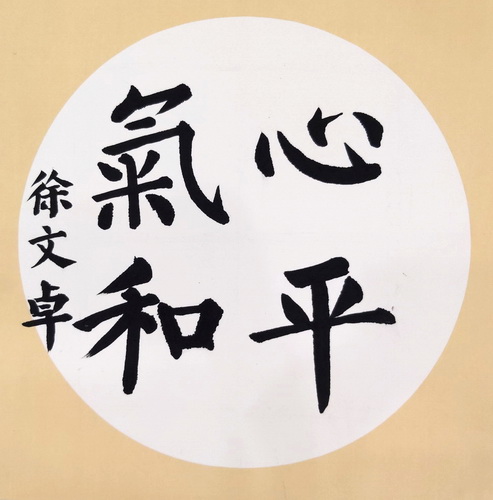 心平
氣和
徐文卓